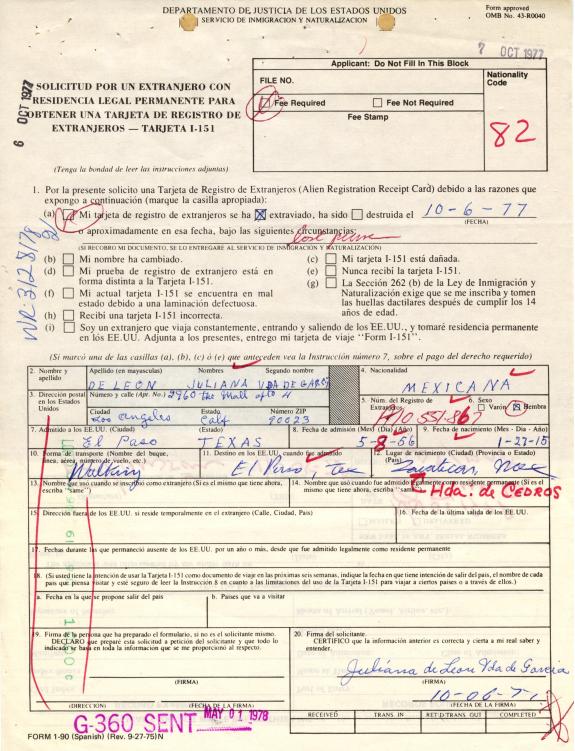 DEPARTAMENTO DE JUSTICIA DE LOS ESTADOS UNIDOS
SERVICIO DE INMIGRACION Y NATURALIZACION
Form approved
OMB No. 43-R0040
7 OCT 1977
6 OCT 1977
SOLICITUD POR UN EXTRANJERO CON
RESIDENCIA LEGAL PERMANENTE PARA
OBTENER UNA TARJETA DE REGISTRO DE
EXTRANJEROS — TARJETA I-151
(Tenga la bondad de leer las instrucciones adjuntas)
Applicant: Do Not Fill In This Block
FILE NO.
Fee Required
Fee Not Required
Fee Stamp
Nationality
Code
82
1. Por la presente solicito una Tarjeta de Registro de Extranjeros (Alien Registration Receipt Card) debido a las razones que
expongo a continuación (marque la casilla apropiada):
(a) Mi tarjeta de registro de extranjeros se ha extraviado, ha sido destruida el 10-6-77
(FECHA)
o aproximadamente en esa fecha, bajo las siguientes circunstancias:
lose purse
(SI RECOBRO MI DOCUMENTO, SE LO ENTREGARE AL SERVICIO DE INMIGRACION Y NATURALIZACION)
(b) Mi nombre ha cambiado.
(c) Mi tarjeta I-151 está dañada.
(d) Mi prueba de registro de extranjero está en
forma distinta a la Tarjeta I-151.
(e) Nunca recibí la tarjeta I-151.
(f) Mi actual tarjeta I-151 se encuentra en mal
estado debido a una laminación defectuosa.
(g) La Sección 262 (b) de la Ley de Inmigración y
Naturalización exige que se me inscriba y tomen
las huellas dactilares después de cumplir los 14
años de edad.
(h) Recibí una tarjeta I-151 incorrecta.
(i) Soy un extranjero que viaja constantemente, entrando y saliendo de los EE.UU., y tomaré residencia permanente
en los EE.UU. Adjunta a los presentes, entrego mi tarjeta I-151 "Form I-151".
(Si marcó una de las casillas (a), (b), (c) ó (e) que anteceden vea la Instrucción número 7, sobre el pago del derecho requerido)
2. Nombre y
apellido
Apellido (en mayusculas) Nombres Segundo nombre
DE LEON JULIANA VDA DE GARCIA
4. Nacionalidad
MEXICANA
3. Dirección postal
en los Estados
Unidos
Número y calle (Apt. No.) 2960 the Mall apto 4
Ciudad Estado Número ZIP
Los angeles Calf 90023
5. Núm. del Registro de
Extranjeros
A10 551 867
6. Sexo
Varón Hembra
7. Admitido a los EE.UU. (Ciudad) (Estado)
El Paso TEXAS
8. Fecha de admisión (Mes) (Día) (Año)
5-8-56
9. Fecha de nacimiento (Mes - Dia - Año)
1-27-15
10. Forma de transporte (Nombre del buque,
línea, aérea, número de vuelo, etc.)
Walking
11. Destino en los EE.UU. cuando fue admitido
El Paso, Tex
12. Lugar de nacimiento (Ciudad) (Provincia o Estado)
(País)
Hda. de CEDROS
13. Nombre que usó cuando se inscribió como extranjero (Si es el mismo que tiene ahora,
escriba "same")
14. Nombre que usó cuando fue admitido legalmente como residente permanente (Si es el
mismo que tiene ahora, escriba "same")
15. Dirección fuera de los EE.UU. si reside temporalmente en el exterior (Calle, Ciudad, País)
16. Fecha de la última salida de los EE.UU.
17. Fechas durante las que permaneció ausente de los EE.UU. por un año o más, desde que fue admitido legalmente como residente permanente
18. (Si usted tiene la intención de usar la Tarjeta I-151 como documento de viaje en las próximas seis semanas, indique la fecha en que tiene intención de salir del país, el nombre de cada
país que piensa visitar y este seguro de leer la Instrucción 8 en cuanto a las limitaciones del uso de la Tarjeta I-151 para viajar a ciertos países o a través de ellos.)
a. Fecha en la que se propone salir del país
b. Paises que va a visitar
19. Firma de la persona que ha preparado el formulario, si no es el solicitante mismo.
DECLARO que preparé esta solicitud a petición del solicitante y que todo lo
indicado se basa en toda la información que se me proporcionó al respecto.
(FIRMA)
(DIRECCION) (FECHA DE LA FIRMA)
20. Firma del solicitante.
CERTIFICO que la información anterior es correcta y cierta a mi real saber y
entender.
Juliana de Leon Vda de Garcia
(FIRMA)
10-06-7
(FECHA DE LA FIRMA)
RECEIVED TRANS. IN RET'D TRANS. OUT COMPLETED
G-360 SENT MAY 01 1978
FORM 1-90 (Spanish) (Rev. 9-27-75)N